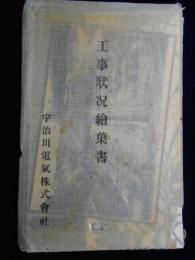 工事狀況繪葉書
宇治川電氣株式會社